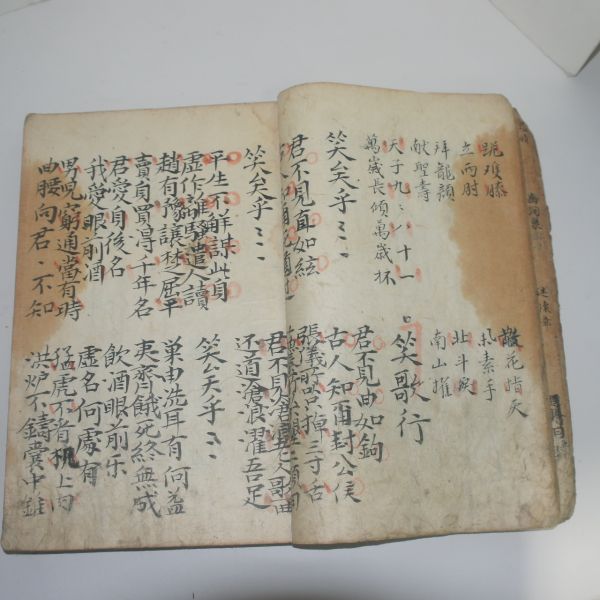 跪双膝
散花指天
立兩肘
举素手
拜龍顏
北斗戾
献聖壽
南山摧
天子九〻八十一
萬歲長傾萬歲杯
笑歌行
笑矣乎〻〻
君不見曲如鉤
君不見直如絃
古人知爾封公侯
張儀所以掉三寸舌
笑矣乎〻〻
君不見滄浪老人歌一曲
还道滄浪濯吾足
平生不解謀此身
笑矣乎〻〻
虛作離騷遣人讀
趙有豫讓楚屈平
巢由洗耳有何益
賣身買得千年名
夷齊餓死終無成
君愛身後名
飲酒眼前乐
我愛眼前酒
虛名何處有
男児窮通當有時
猛虎不看机上肉
曲腰向君〻不知
洪炉不鑄囊中錐